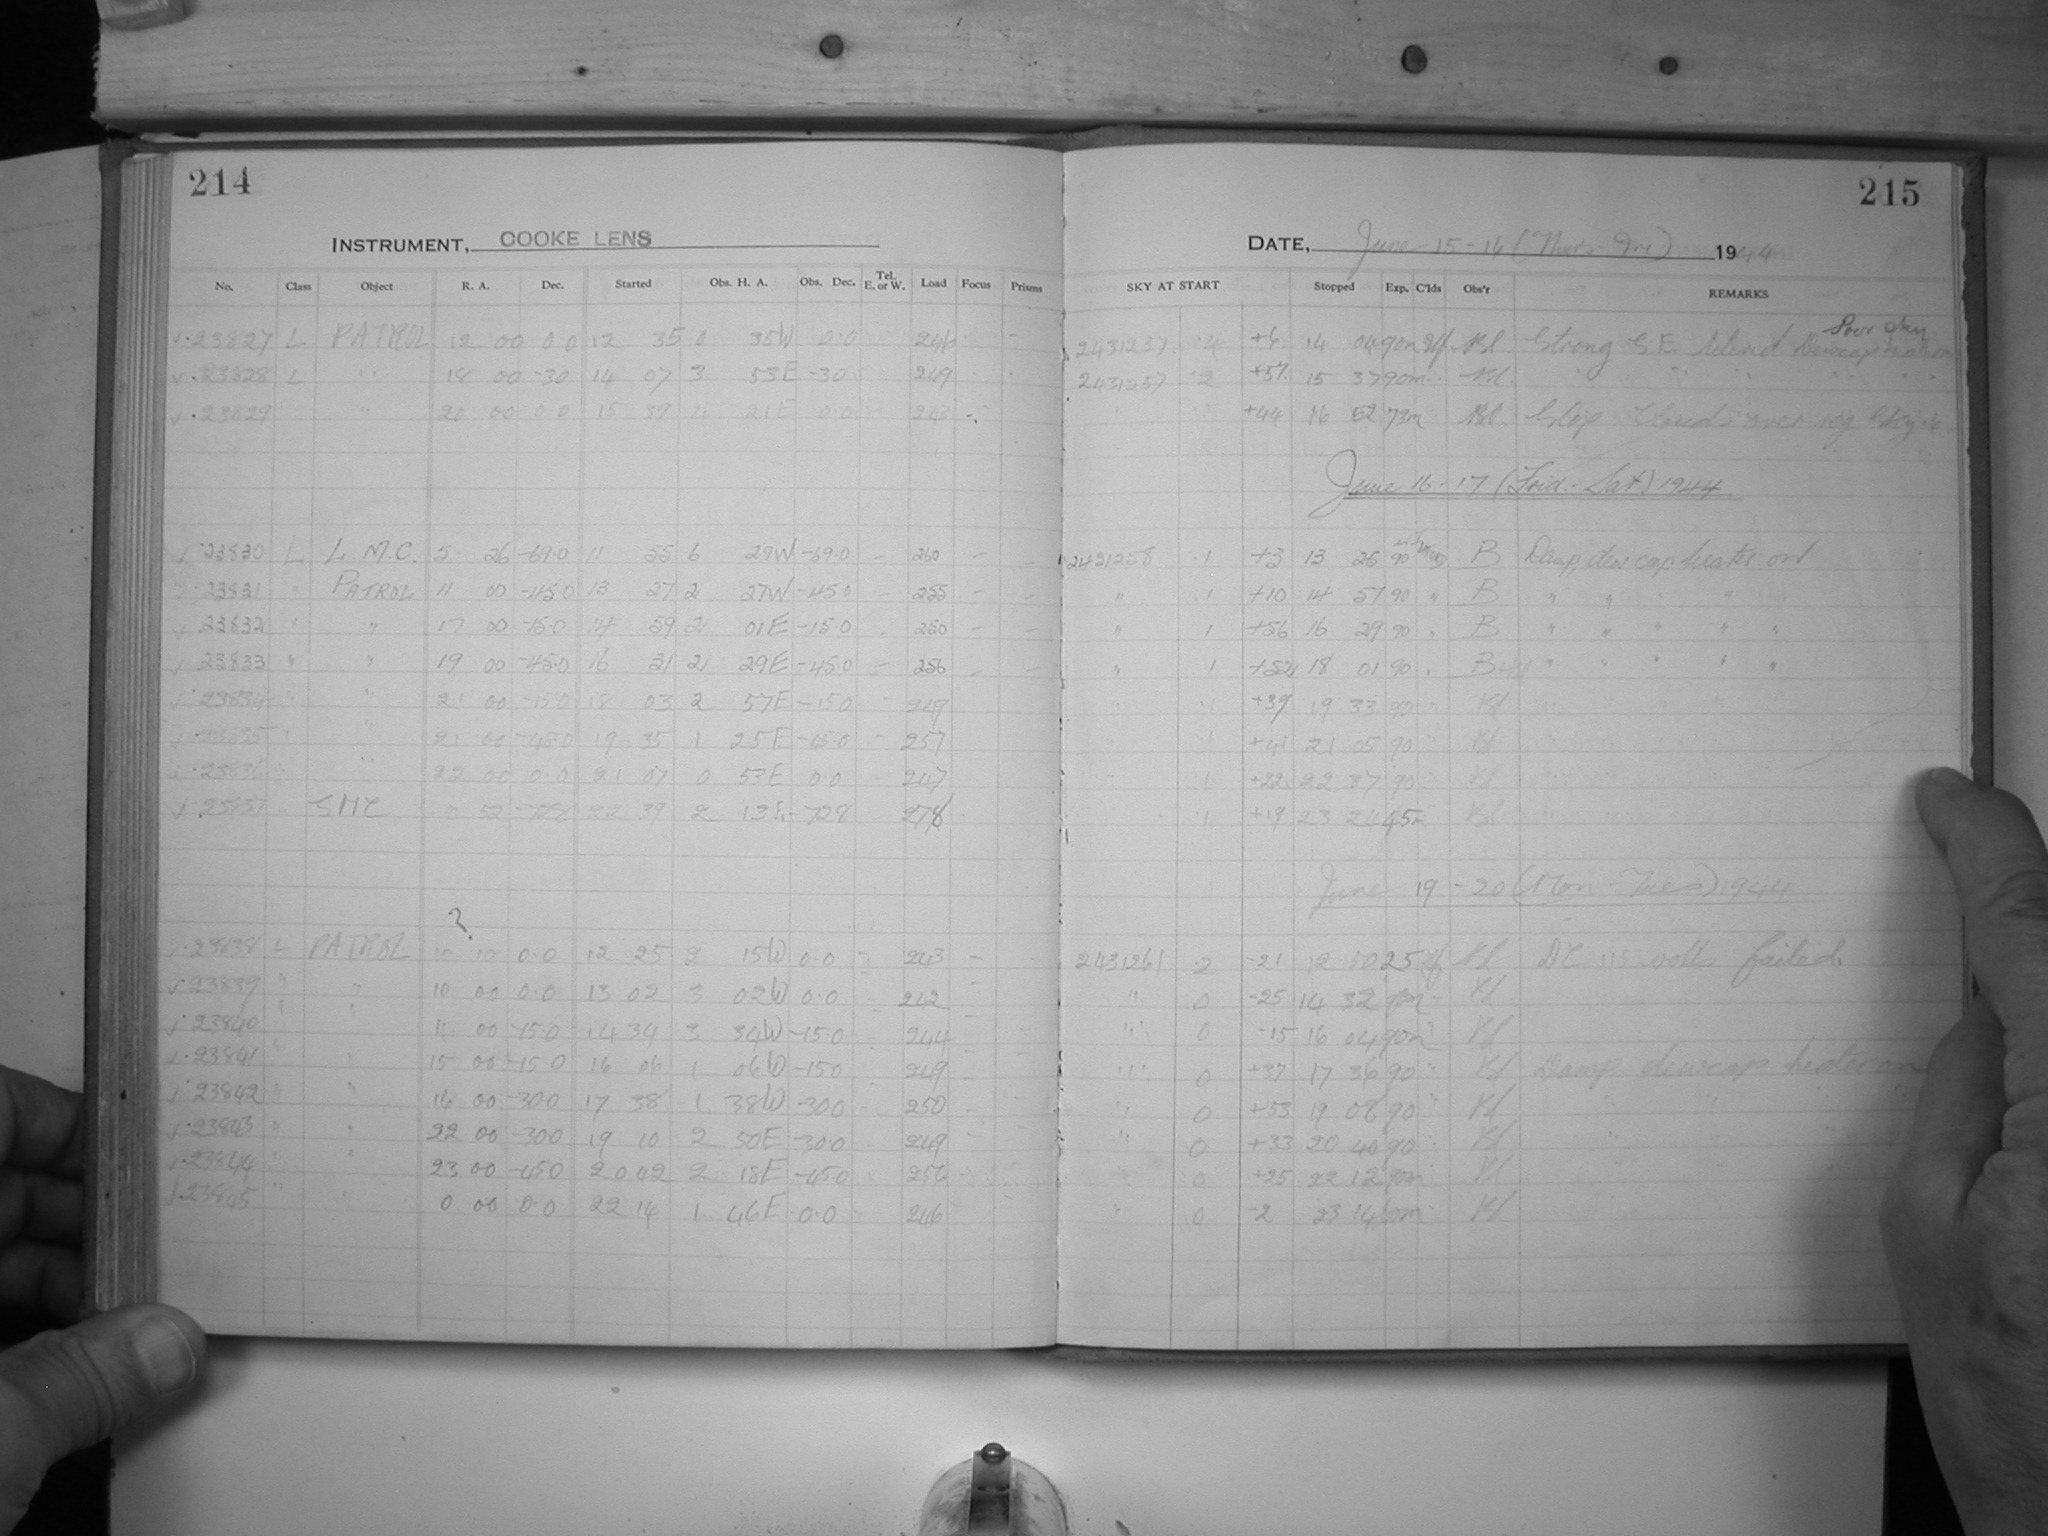 214
INSTRUMENT, COOKE LENS
No. Class Object R. A. Dec. Started Obs. H. A. Obs. Dec. Tel. E. or W. Load Focus Prisms
23827 L PATROL 12 00 0.0 12 35 0 35W 0.0 246
23828 L " 18 00 -30 14 07 3 53E -30 249
23829 " 20 00 0.0 15 39 4 21E 0.0 243
23830 L L.M.C. 5 26 -69.0 11 55 6 29W -69.0 - 260 - -
23831 " PATROL 11 00 -45.0 13 27 2 27W -45.0 - 255 - -
23832 " " 17 00 -15.0 14 59 2 01E -15.0 - 250 - -
23833 " " 19 00 -45.0 16 31 2 29E -45.0 - 256 - -
23834 " " 21 00 -15.0 18 03 2 57E -15.0 - 249
23835 " " 21 00 -45.0 19 35 1 25E -45.0 - 257
23836 " " 22 00 0.0 21 07 0 53E 0.0 247
23837 SMC 0 52 -728 22 39 2 13E -728 278
?
23838 L PATROL 10 10 0.0 12 25 2 15W 0.0 - 243 - -
23839 " " 10 00 0.0 13 02 3 02W 0.0 - 242 -
23840 " " 11 00 -15.0 14 34 3 34W -15.0 244
23841 " " 15 00 -15.0 16 06 1 06W -150 249
23842 " " 16 00 -300 17 38 1 38W -300 250
23843 " " 22 00 -300 19 10 2 50E -300 249
23844 " " 23 00 -450 20 42 2 18E -45.0 256
23845 " " 0 00 0.0 22 14 1 46E 0.0 246
215
DATE, June 15-16 (Thurs-Fri) 1944
SKY AT START Stopped Exp. C'lds Obs'r REMARKS
Poor sky
2431257 .4 +6 14 04 90m Bl Strong S E Wind Dewcap
2431257 .2 +57 15 37 90m Bl
" +44 16 52 73m Bl Stop Clouds over
June 16-17 (Frid.-Sat) 1944
2431258 .1 +3 13 25 90 B Damp, dew cap heater on
" .1 +10 14 57 90 " B " " " " "
" 1 +56 16 29 90 " B " " " " "
" 1 +52 18 01 90 " B " " " " "
" 1 +39 19 33 90 " Bl " "
" 1 +41 21 05 90 " Bl
" 1 +22 22 37 90 Bl
" 1 +19 23 24 45m Bl
June 19-20 (Mon-Tues) 1944
2431261 .2 -21 12 50 25 Bl DC 115 volts failed.
" 0 -25 14 32 90m Bl
" 0 -15 16 04 90m " Bl
" 0 +37 17 36 90 " Bl Damp dewcap heater on
" 0 +53 19 08 90 " Bl
" 0 +33 20 40 90 " Bl
" 0 +25 22 12 90m Bl
" 0 -2 23 14 60m Bl